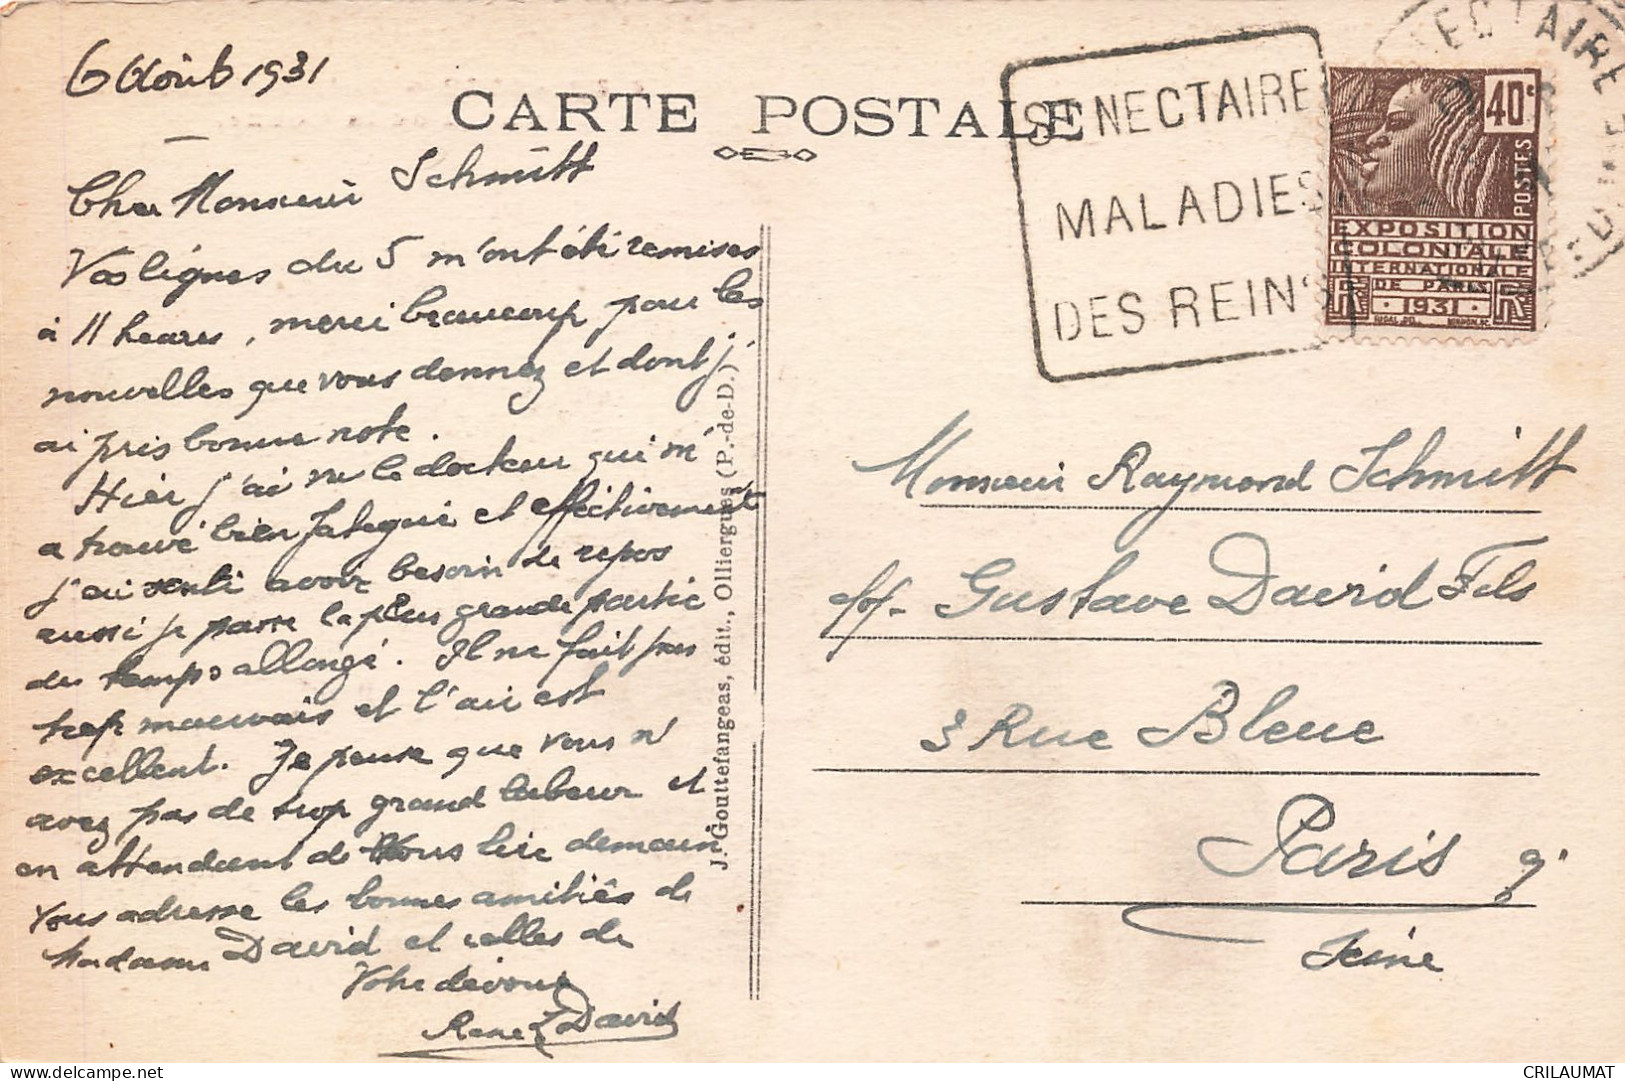 6 Août 1931
CARTE POSTALE
Cher Monsieur Schmitt
Vos lignes du 5 m'ont été remises
à 11 heures, merci beaucoup pour les
nouvelles que vous donnez et dont j'
ai pris bonne note.
Hier j'ai vu le docteur qui m'
a trouvé bien fatigué et effectivement
j'ai senti avoir besoin de repos
aussi je passe la plus grande partie
du temps allongé. Il ne fait pas
trop mauvais et l'air est
excellent. Je pense que vous n'
avez pas de trop grand labeur et
en attendant de vous lire demain
vous adresse les bonnes amitiés de
Madame David et celles de
Votre dévoué
René David
J. Gouttefangeas, édit., Olliergues (P.-de-D.)
ST NECTAIRE
MALADIES
DES REINS
ECTAIRE
40c
POSTES
EXPOSITION
COLONIALE
INTERNATIONALE
DE PARIS
RF 1931 RF
Monsieur Raymond Schmitt
Gustave David Fils
3 Rue Bleue
Paris 9e
Seine
CRILAUMAT